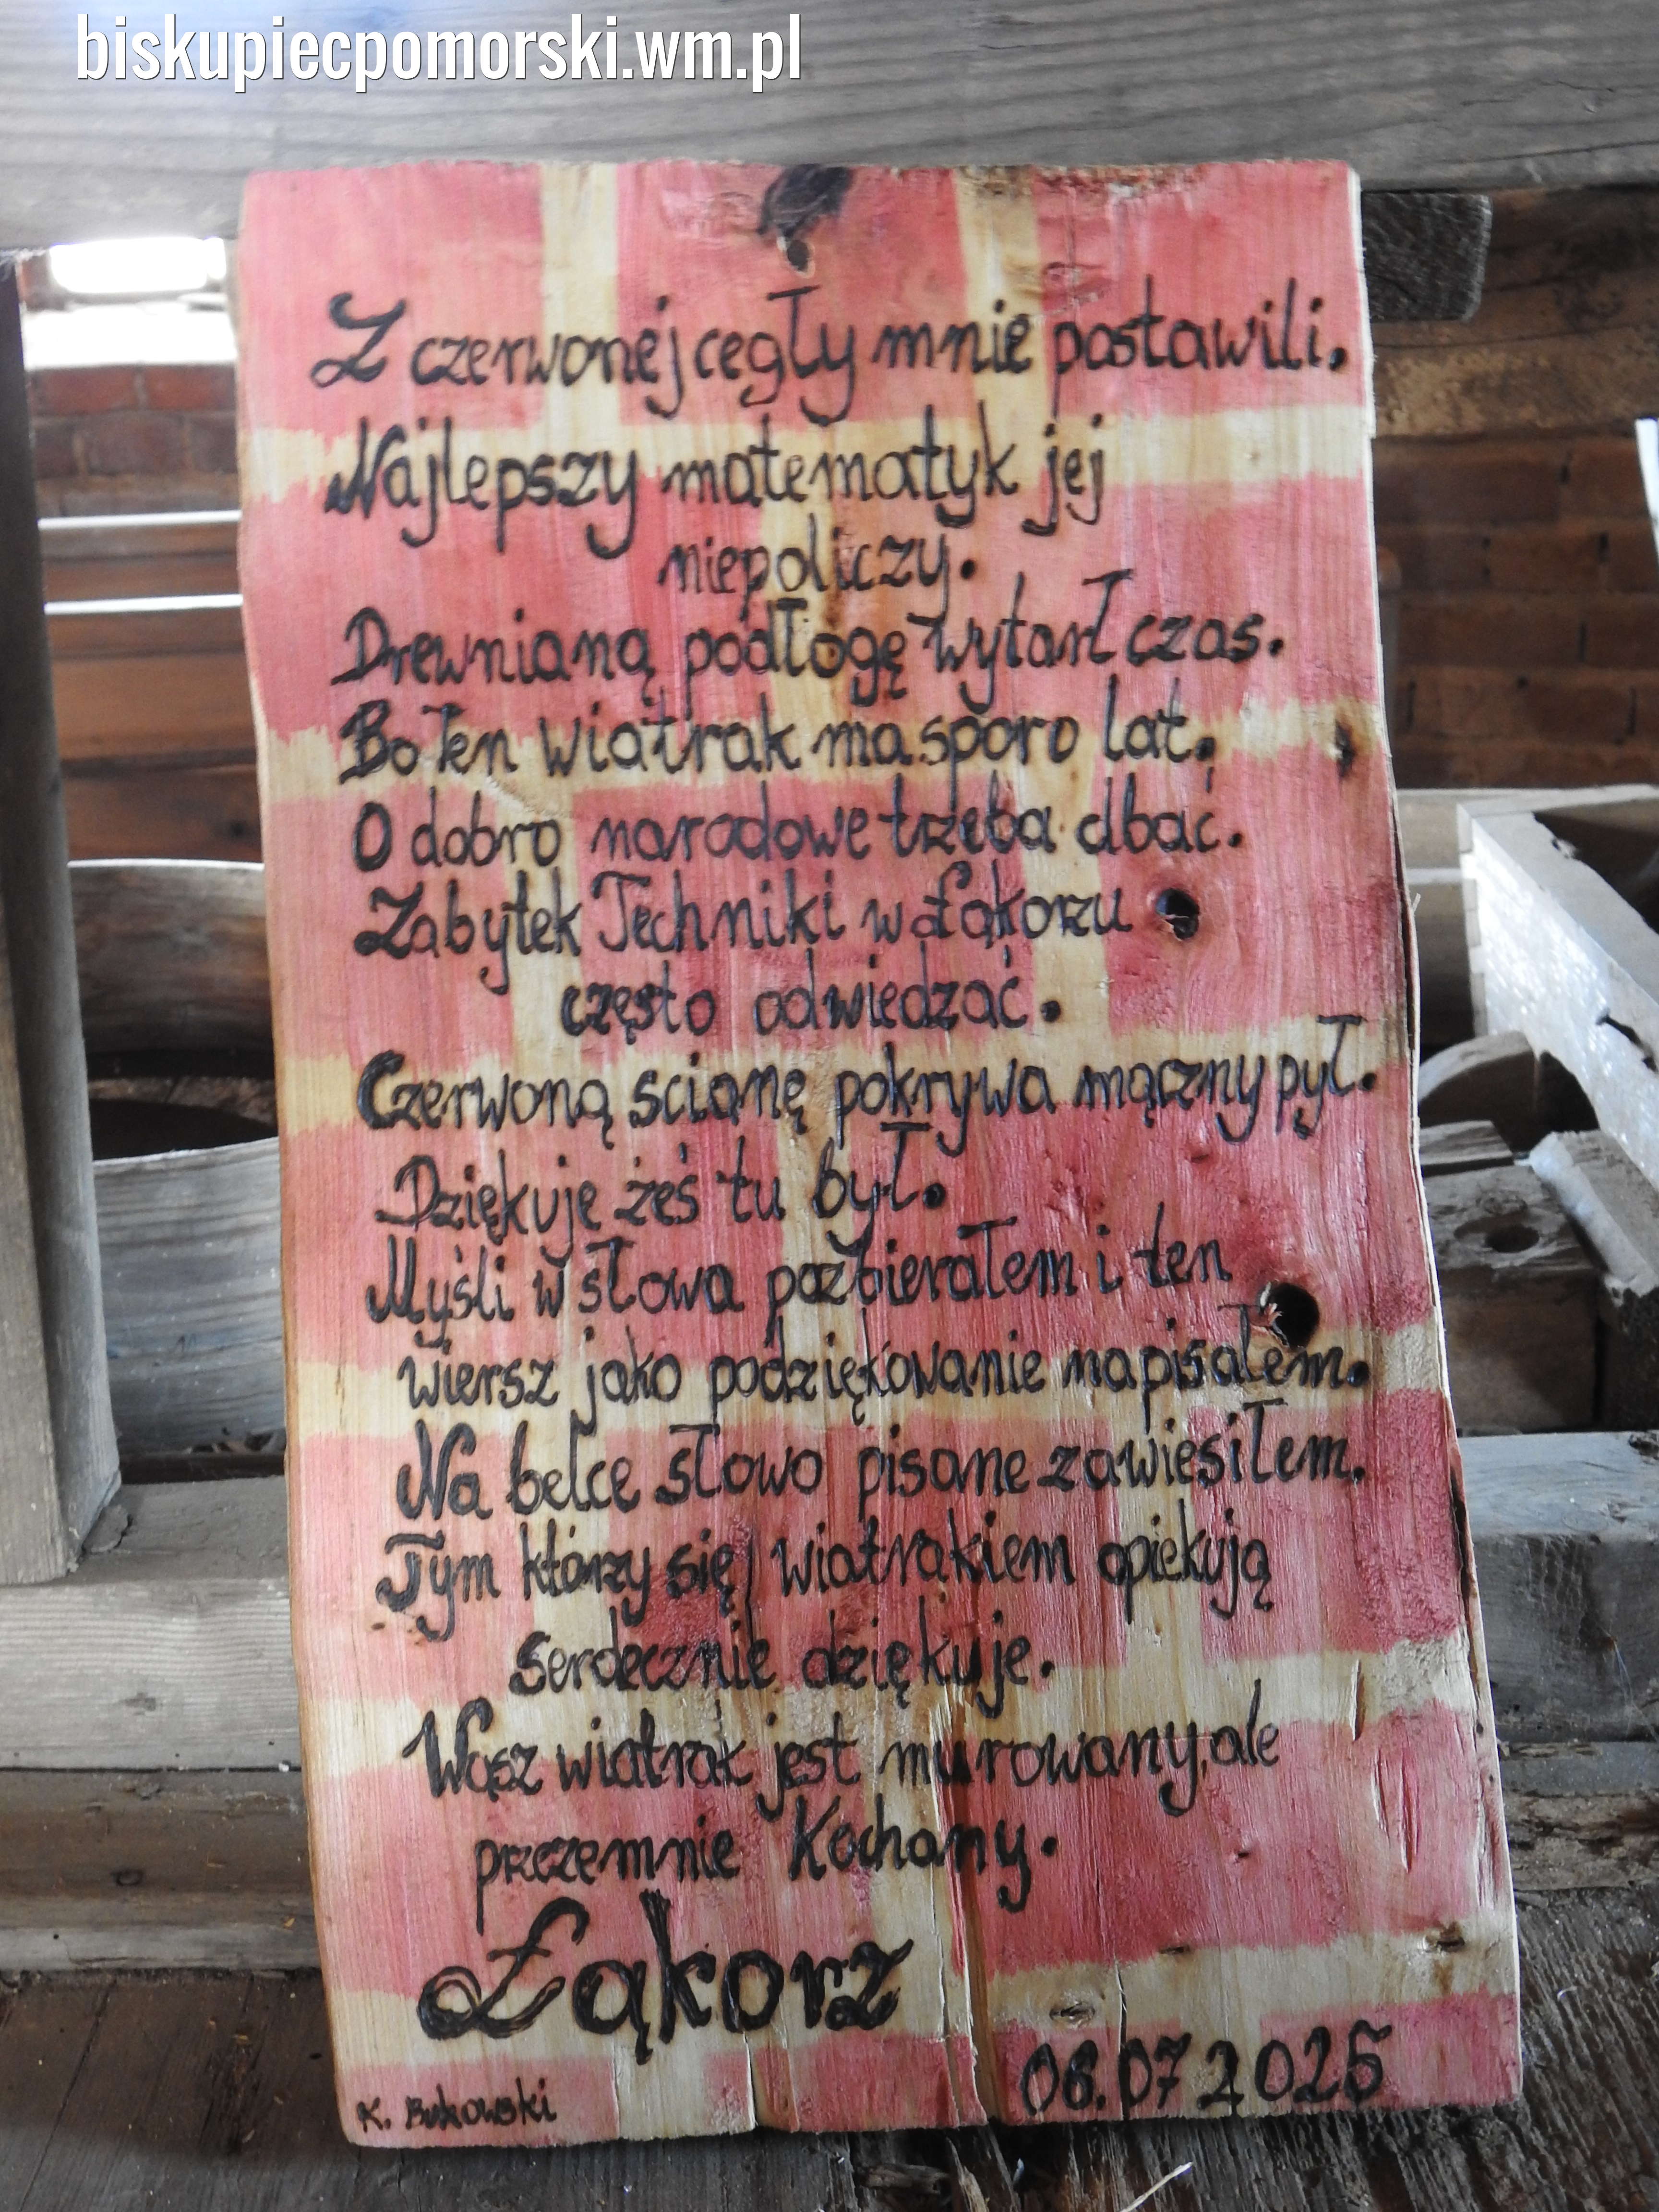 biskupiecpomorski.wm.pl
Z czerwonej cegły mnie postawili.
Najlepszy matematyk jej
niepoliczy.
Drewnianą podłogę wytarł czas.
Bo ten wiatrak ma sporo lat.
O dobro narodowe trzeba dbać.
Zabytek Techniki w Łąkorzu
często odwiedzać.
Czerwoną scianę pokrywa mączny pył.
Dziękuje żeś tu był.
Myśli w słowa pozbierałem i ten
wiersz jako podziękowanie napisałem.
Na belce słowo pisane zawiesiłem.
Tym którzy się wiatrakiem opiekują
serdecznie dziękuje.
Wasz wiatrak jest murowany, ale
przezemnie Kochany.
Łąkorz
06.07 2025
K. Bukowski